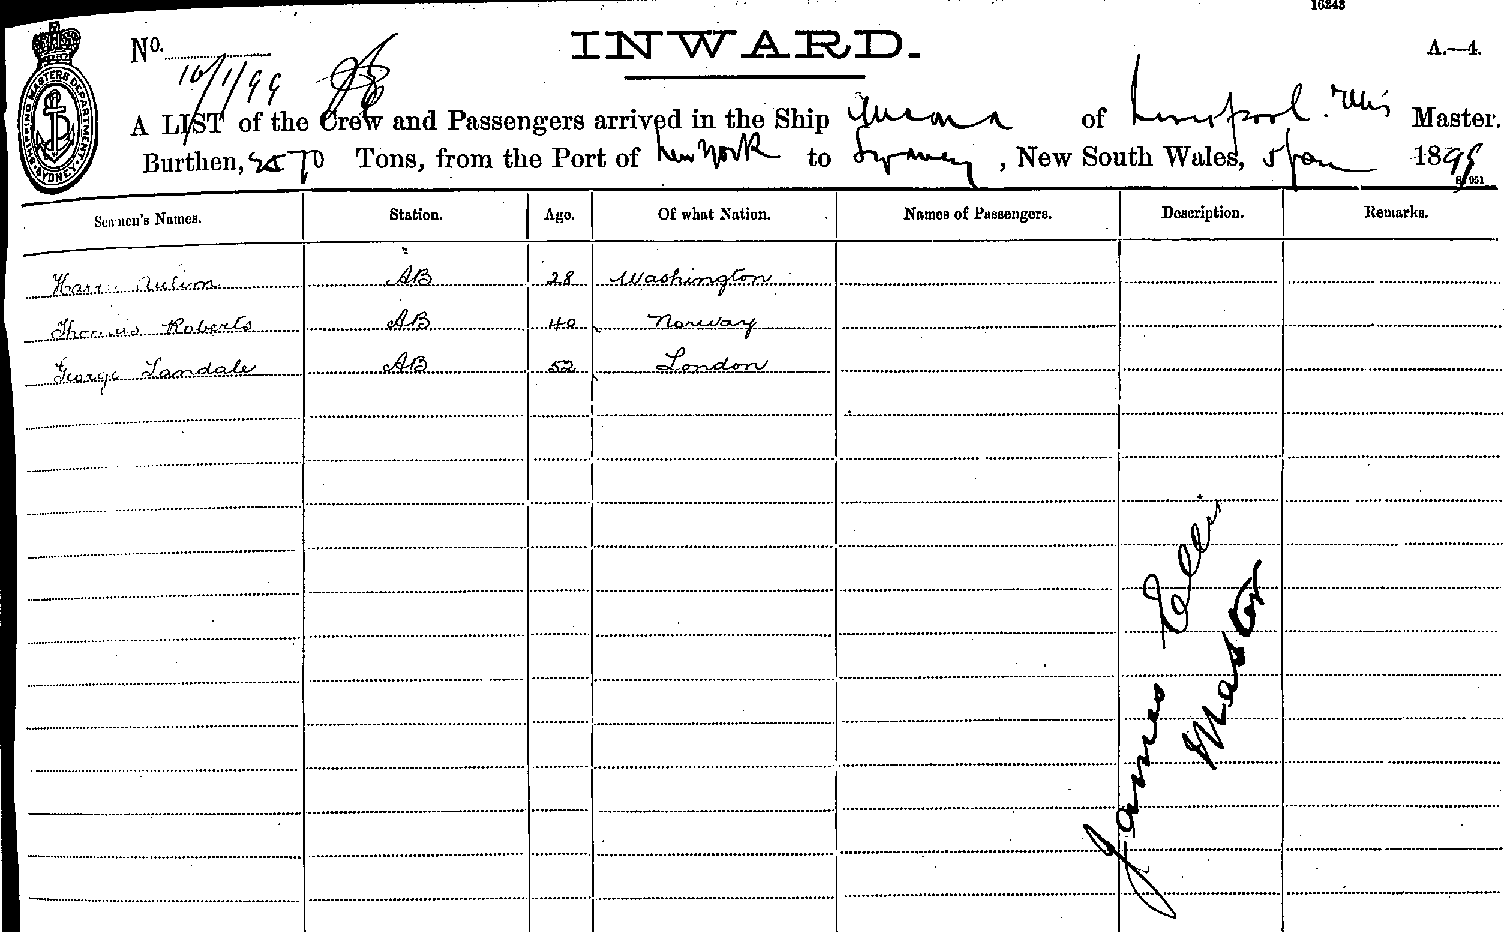 16243
No. 10/1/99
INWARD.
A.—4.
A LIST of the Crew and Passengers arrived in the Ship of Liverpool. Ellis Master.
Burthen, 2570 Tons, from the Port of New York to Sydney, New South Wales, 5 Jan 1899
SHIPPING MASTERS DEPARTMENT SYDNEY
Seamen's Names. Station. Age. Of what Nation. Names of Passengers. Description. Remarks.
AB 28 Washington
Thomas Roberts AB 40 Norway
George Landale AB 52 London
James Ellis
Master